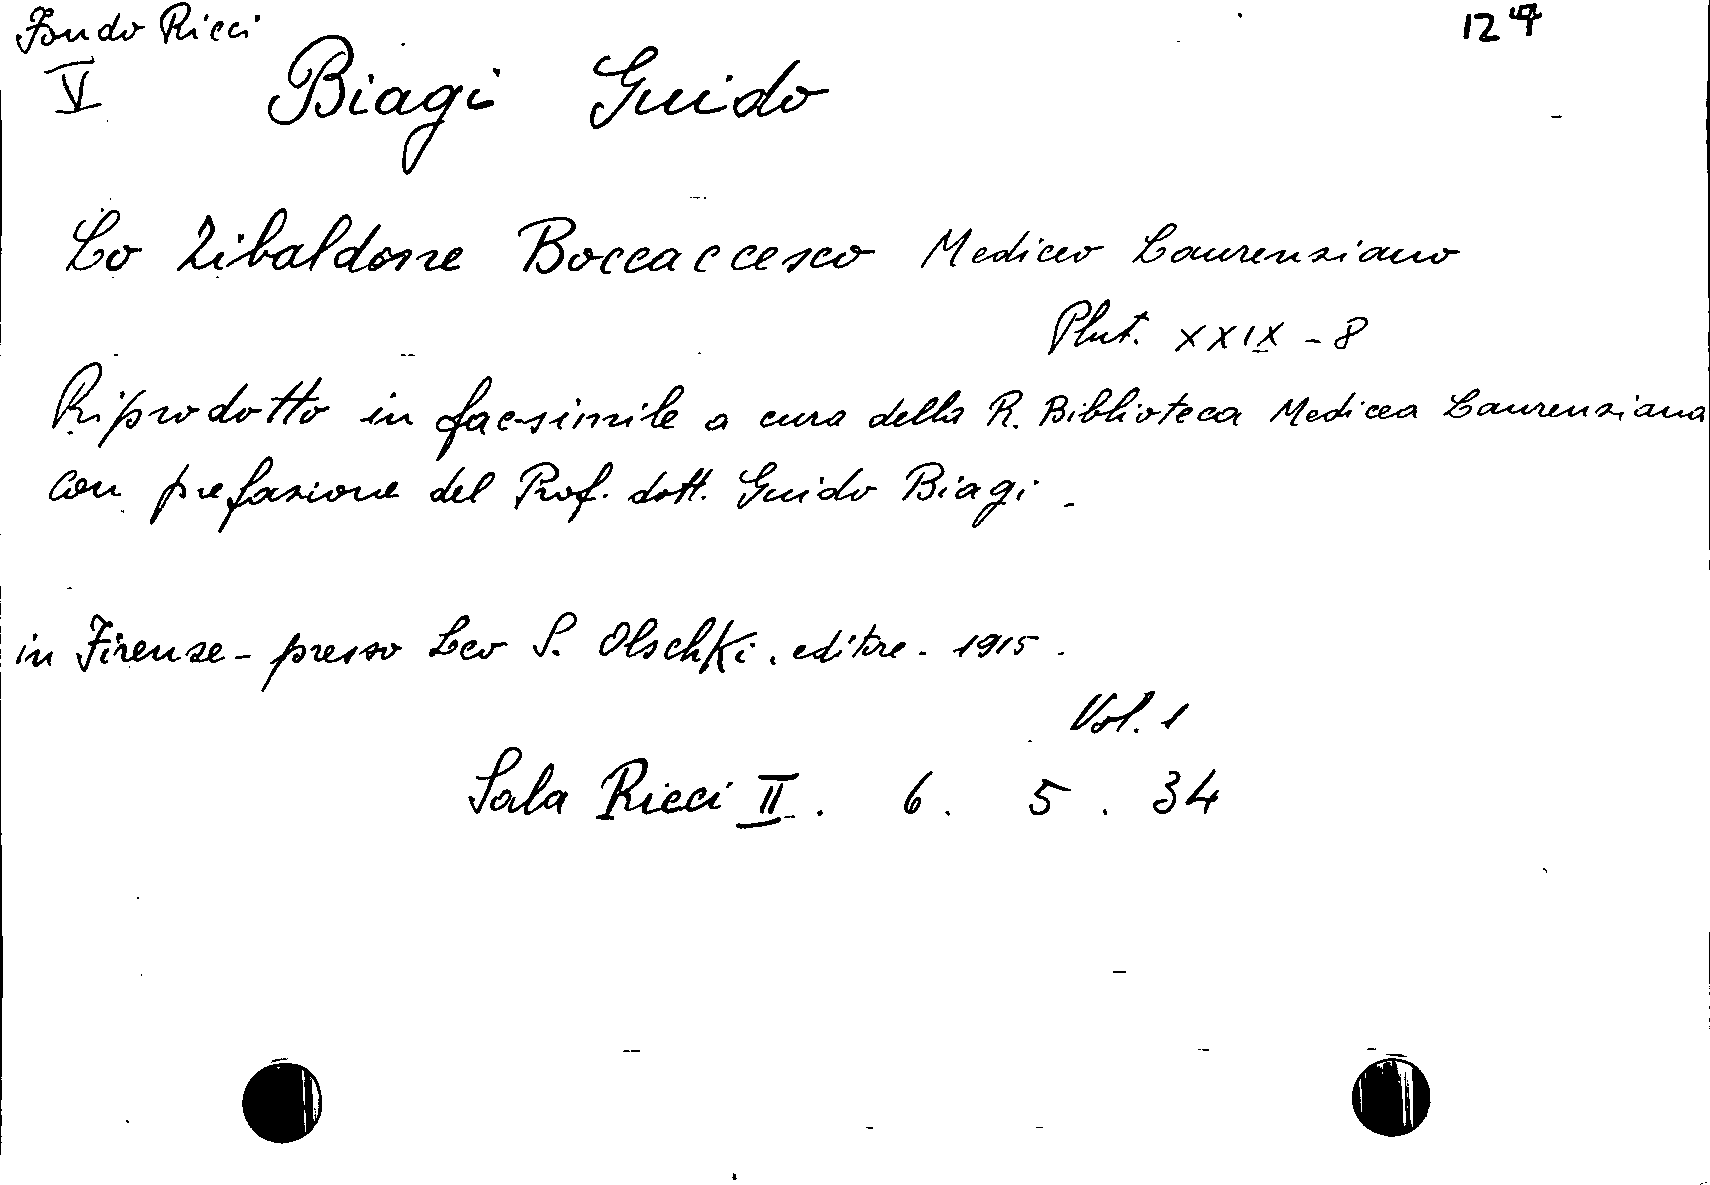 Fondo Ricci
124
V
Biagi Guido
Lo Zibaldone Boccaccesco Mediceo Laurenziano
Plut. XXIX - 8
Riprodotto in fac-simile a cura della R. Biblioteca Medicea Laurenziana
con prefazione del Prof. dott. Guido Biagi -
in Firenze - presso Leo S. Olschki. editore - 1915 -
Vol. 1
Sala Ricci II. 6. 5. 34